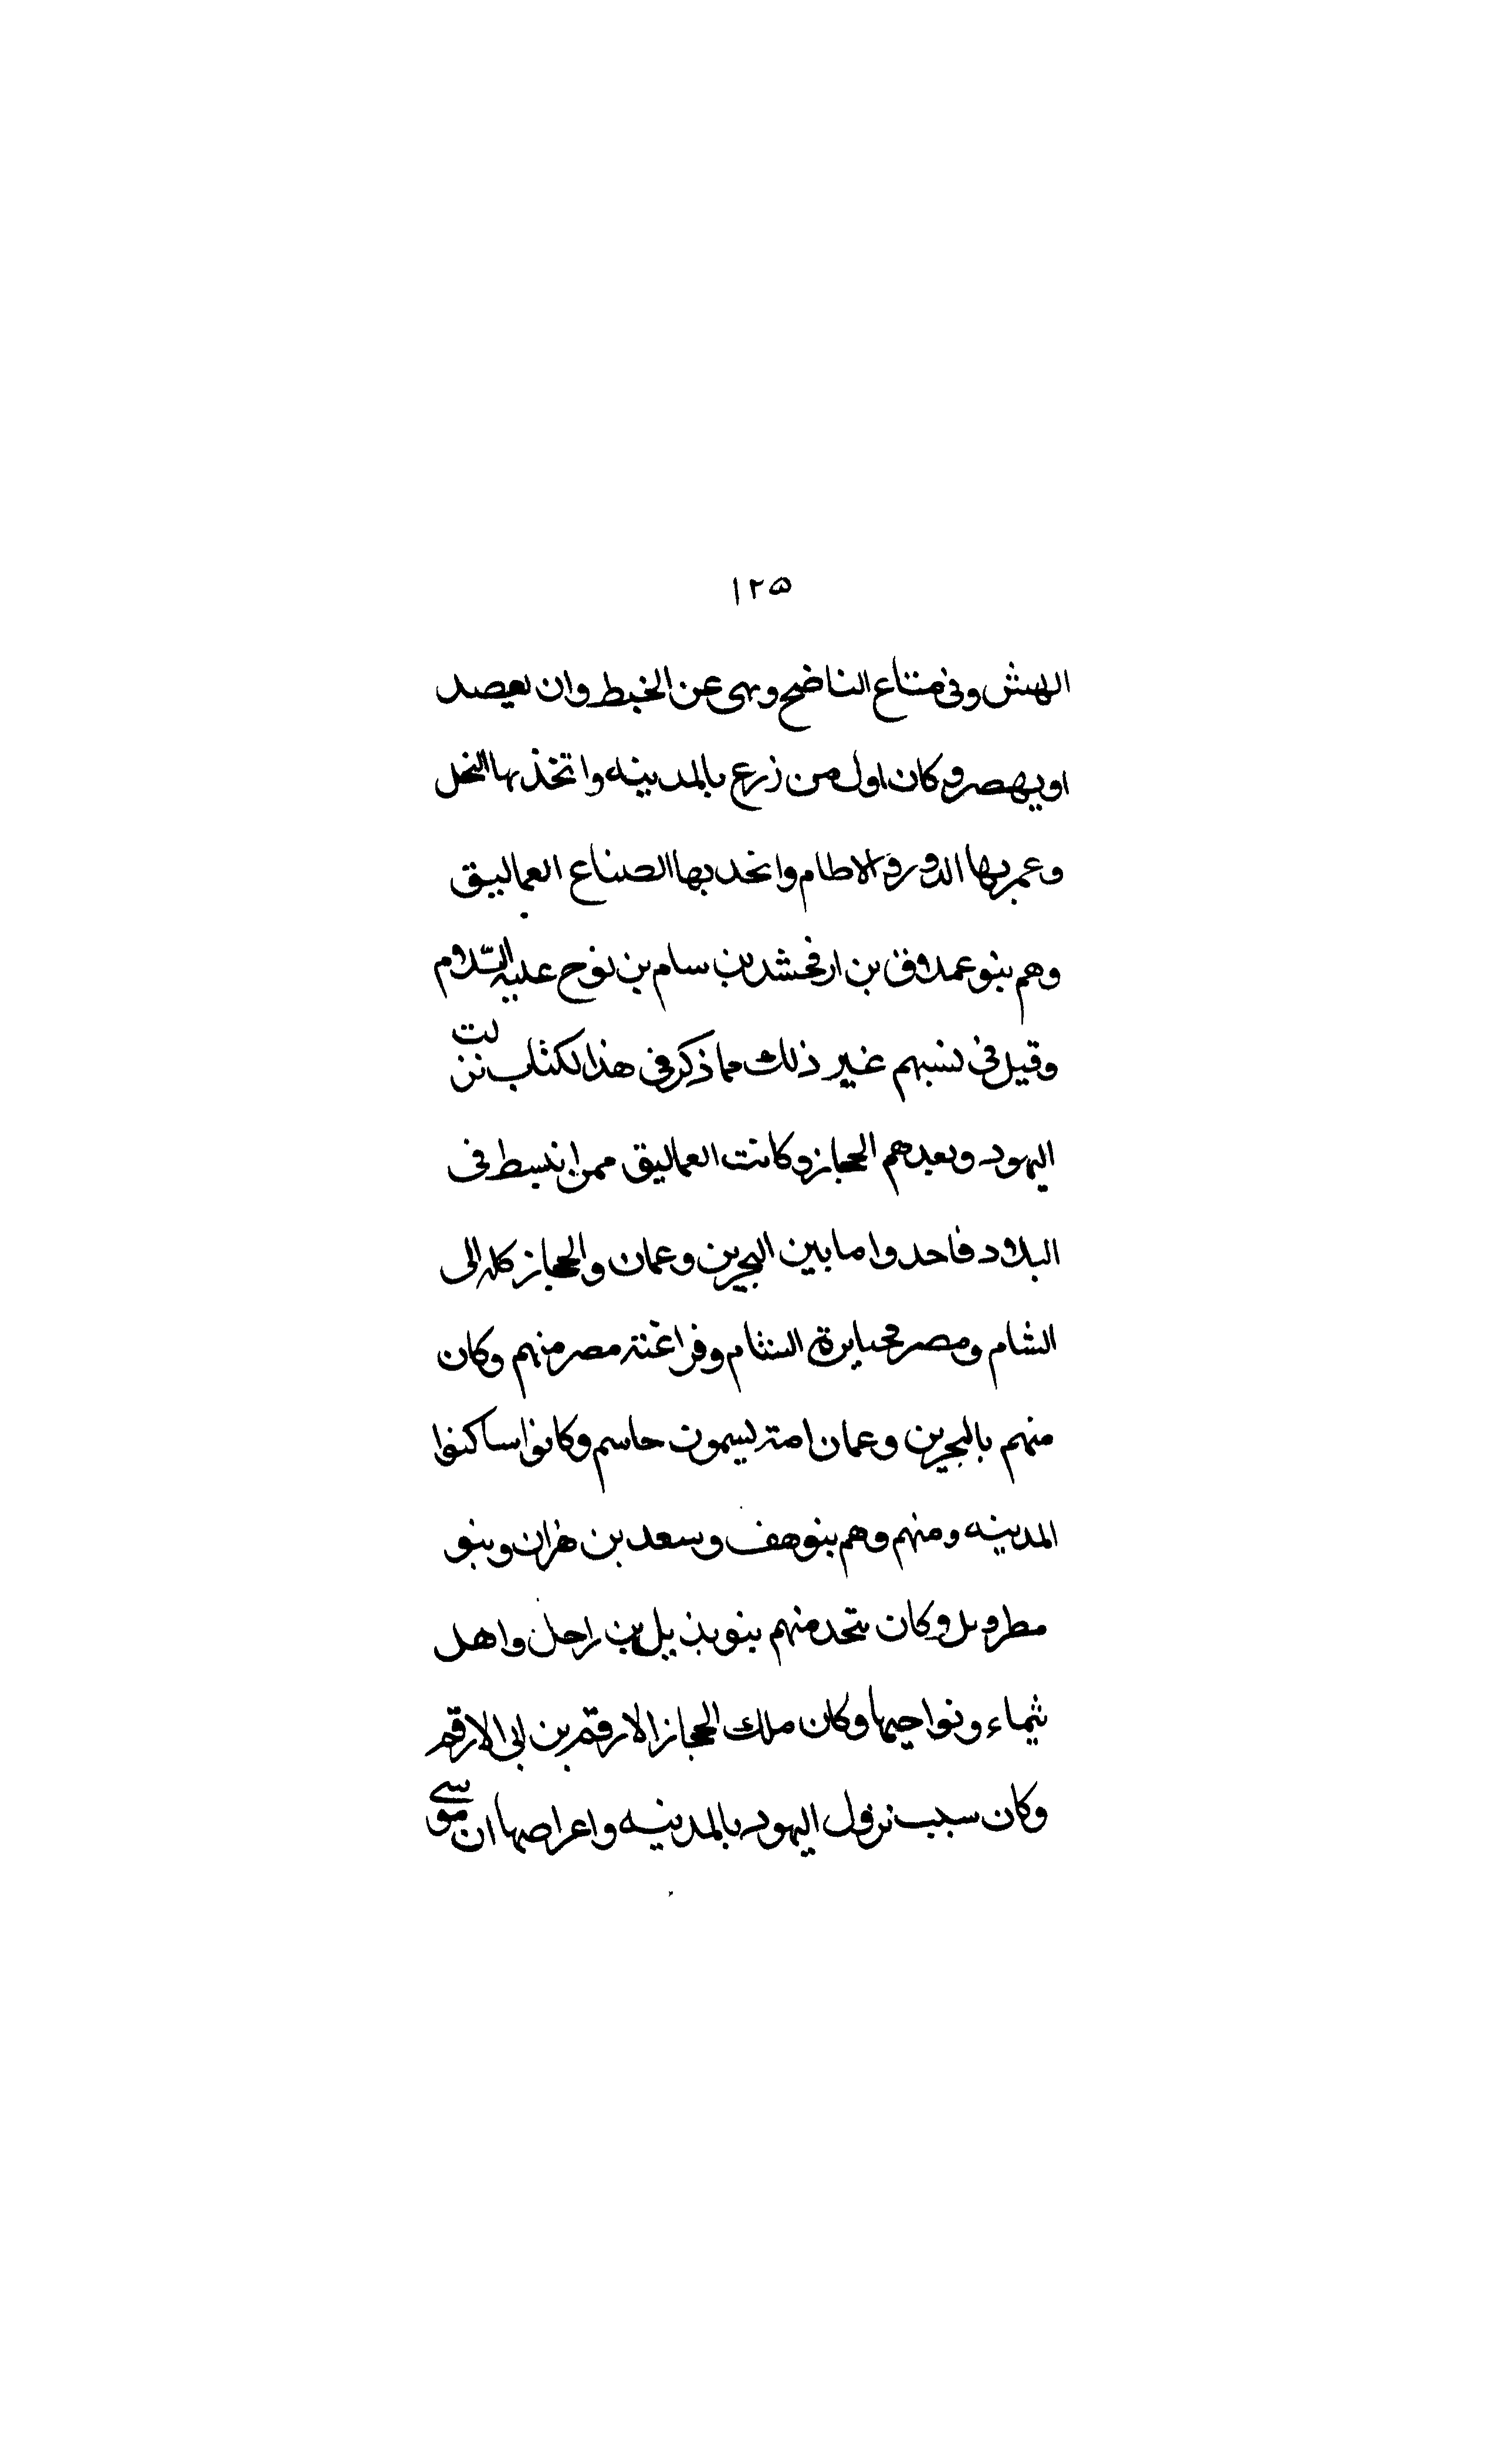 ١٢٥
الهش وفى متاع الناضح ونهى عن الخبط وان يعصد
او يهصر وكان اول من زرع بالمدينه واتخذ بها النخل
وعمر بها الدور والاطام واتخد بها الصناع العماليق
وهم بنو عملاق بن ارفخشد بن سام بن نوح عليه السّلام
وقيل فى نسبهم غير ذلك مما ذكر فى هذا لكتاب نزلت
اليهود وبعدهم الحجاز وكانت العماليق ممن انبسط فى
البلاد فاحدوا ما بين البحرين وعمان والحجاز كله الى
الشام ومصر فجبابرة الشام وفراعنة مصر منهم وكان
منهم بالبحرين وعمان امة يسمون جاسم وكانوا ساكنوا
المدينه ومنهم وهم بنو هف وسعد بن هزان وبنو
مطرويل وكان بنجد منهم بنو بذيل بن راحل واهل
تيماء ونواحيها وكان ملك الحجاز الارقم بن ابى الارقم
وكان سبب نزول اليهود بالمدينه واعراضها ان موسى